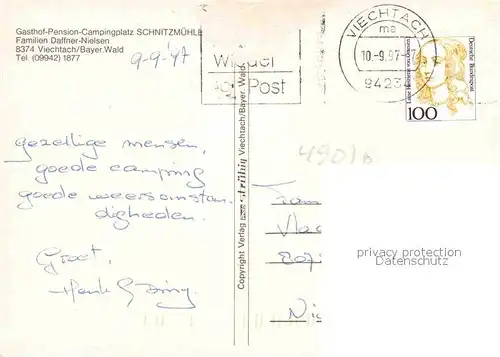 Gasthof-Pension-Campingplatz SCHNITZMÜHLE
Familien Daffner-Nielsen
8374 Viechtach/Bayer.Wald
Tel. (09942) 1877
9-9-'97
Post
VIECHTACH
ma
10.-9.97-
9423
Deutsche Bundespost
100
gezellige mensen,
goede camping
goede weersomstan-
digheden.
Groet,
Henk
Copyright Verlag Viechtach/Bayer. Wald
4901
Fam
Vla
Ni
privacy protection
Datenschutz